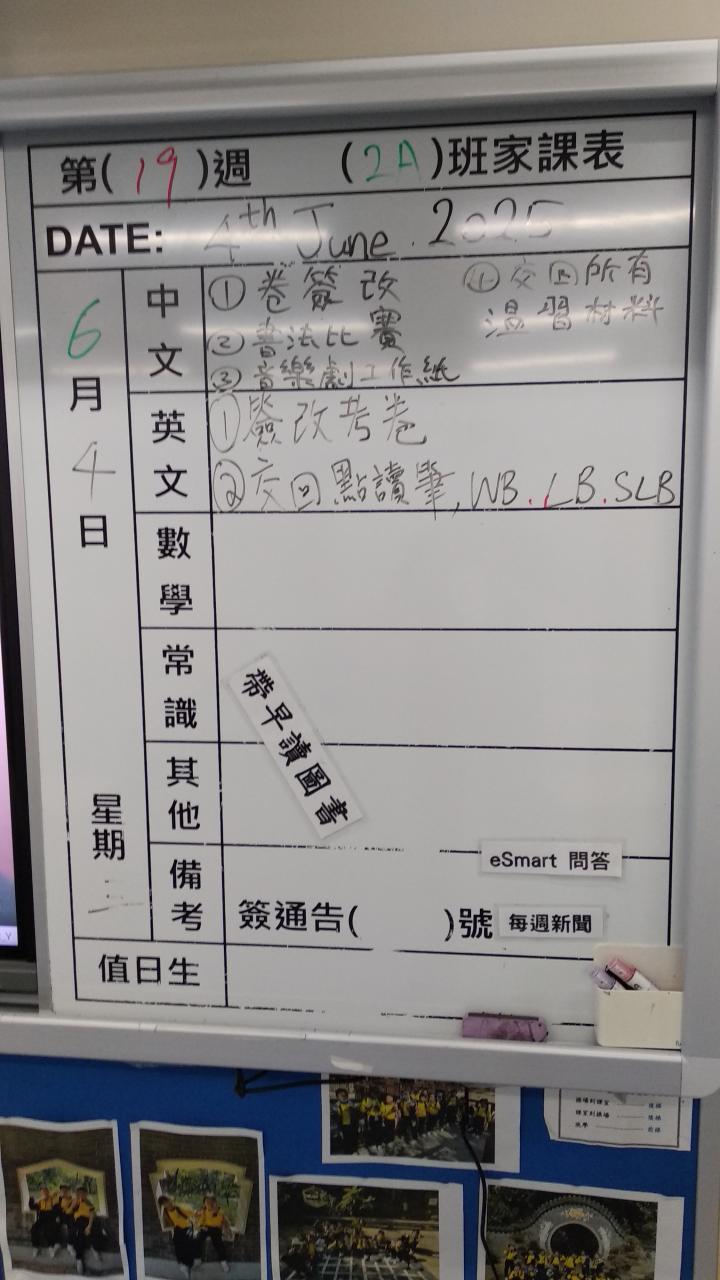 第(19)週 (2A)班家課表
DATE: 4th June. 2025
6月4日 星期三
中文
①卷簽改
②書法比賽
③音樂劇工作紙
④交回所有
溫習材料
英文
①簽改考卷
②交回點讀筆, WB. LB. SLB
數學
常識
帶早讀圖書
其他
eSmart 問答
備考
簽通告( )號
每週新聞
值日生